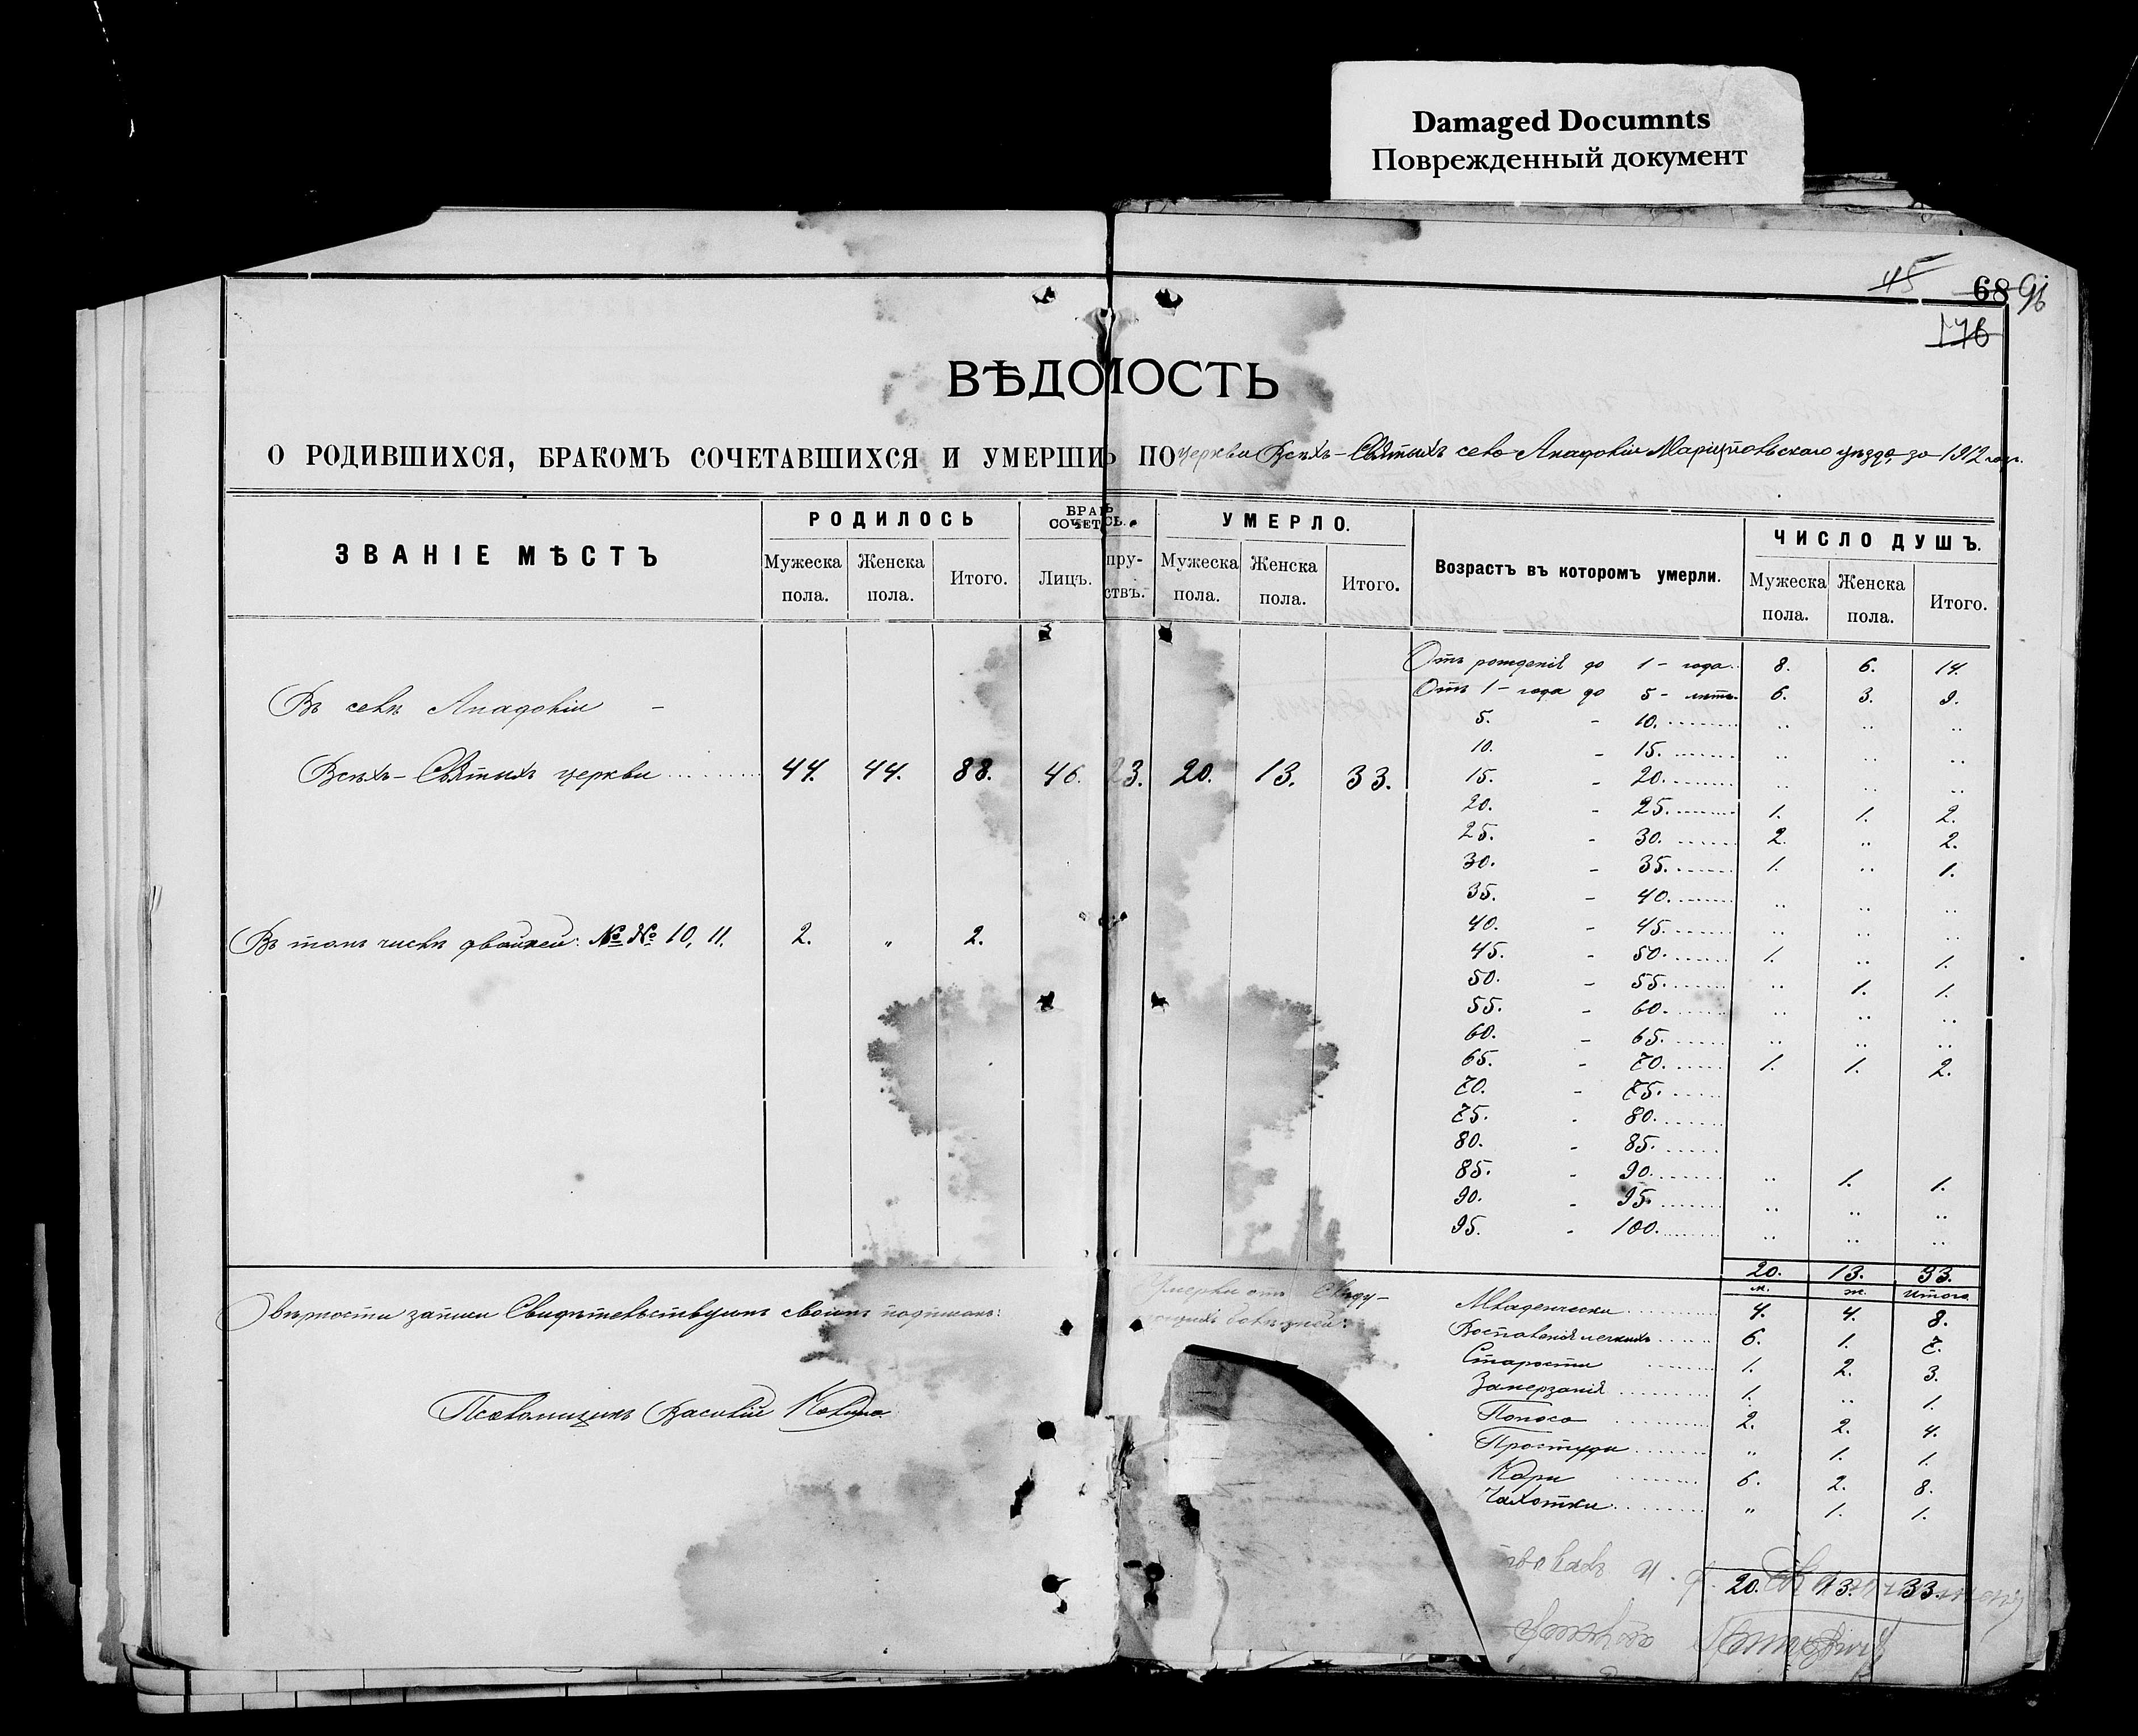 Damaged Documnts
Поврежденный документ
45 68 96
176
ВѢДОМОСТЬ
О РОДИВШИХСЯ, БРАКОМЪ СОЧЕТАВШИХСЯ И УМЕРШИХЪ ПО церкви Всѣхъ-Святыхъ села Анадоліи Маріупольскаго уѣзда, за 1912 годъ.
ЗВАНІЕ МѢСТЪ
РОДИЛОСЬ
Мужеска пола. Женска пола. Итого.
БРАК СОЧЕТ СЬ.
Лицъ. пру-ствъ.
УМЕРЛО.
Мужеска пола. Женска пола. Итого.
Возрастъ въ которомъ умерли.
ЧИСЛО ДУШЪ.
Мужеска пола. Женска пола. Итого.
Въ селѣ Анадоліи –
Всѣхъ-Святыхъ церкви 44. 44. 88. 46. 23. 20. 13. 33.
Въ томъ числѣ двойней: №№ 10, 11. 2. " 2.
Отъ рожденія до 1 – года 8. 6. 14.
Отъ 1 – года до 5 – лѣтъ 6. 3. 9.
5. - 10. .. .. ..
10. - 15. .. .. ..
15. - 20. .. .. ..
20. - 25. 1. 1. 2.
25. - 30. 2. .. 2.
30. - 35. 1. .. 1.
35. - 40. .. .. ..
40. - 45. .. .. ..
45. - 50. 1. .. 1.
50. - 55. .. 1. 1.
55. - 60. .. .. ..
60. - 65. .. .. ..
65. - 70. 1. 1. 2.
70. - 75.
75. - 80.
80. - 85.
85. - 90. .. 1. 1.
90. - 95. .. .. ..
95. - 100. .. .. ..
20. 13. 33.
м. ж. итого
О вѣрности записи свидѣтельствуемъ своимъ подписомъ:
Псаломщикъ Василій
Умерли отъ слѣду-
ющихъ болѣзней:
Младенчески 4. 4. 8.
Воспаленія легкихъ 6. 1. 7.
Старости 1. 2. 3.
Замерзанія 1. .. 1.
Поноса 2. 2. 4.
Простуди " 1. 1.
Кори 6. 2. 8.
Чахотки " 1. 1.
20. 13. 33.